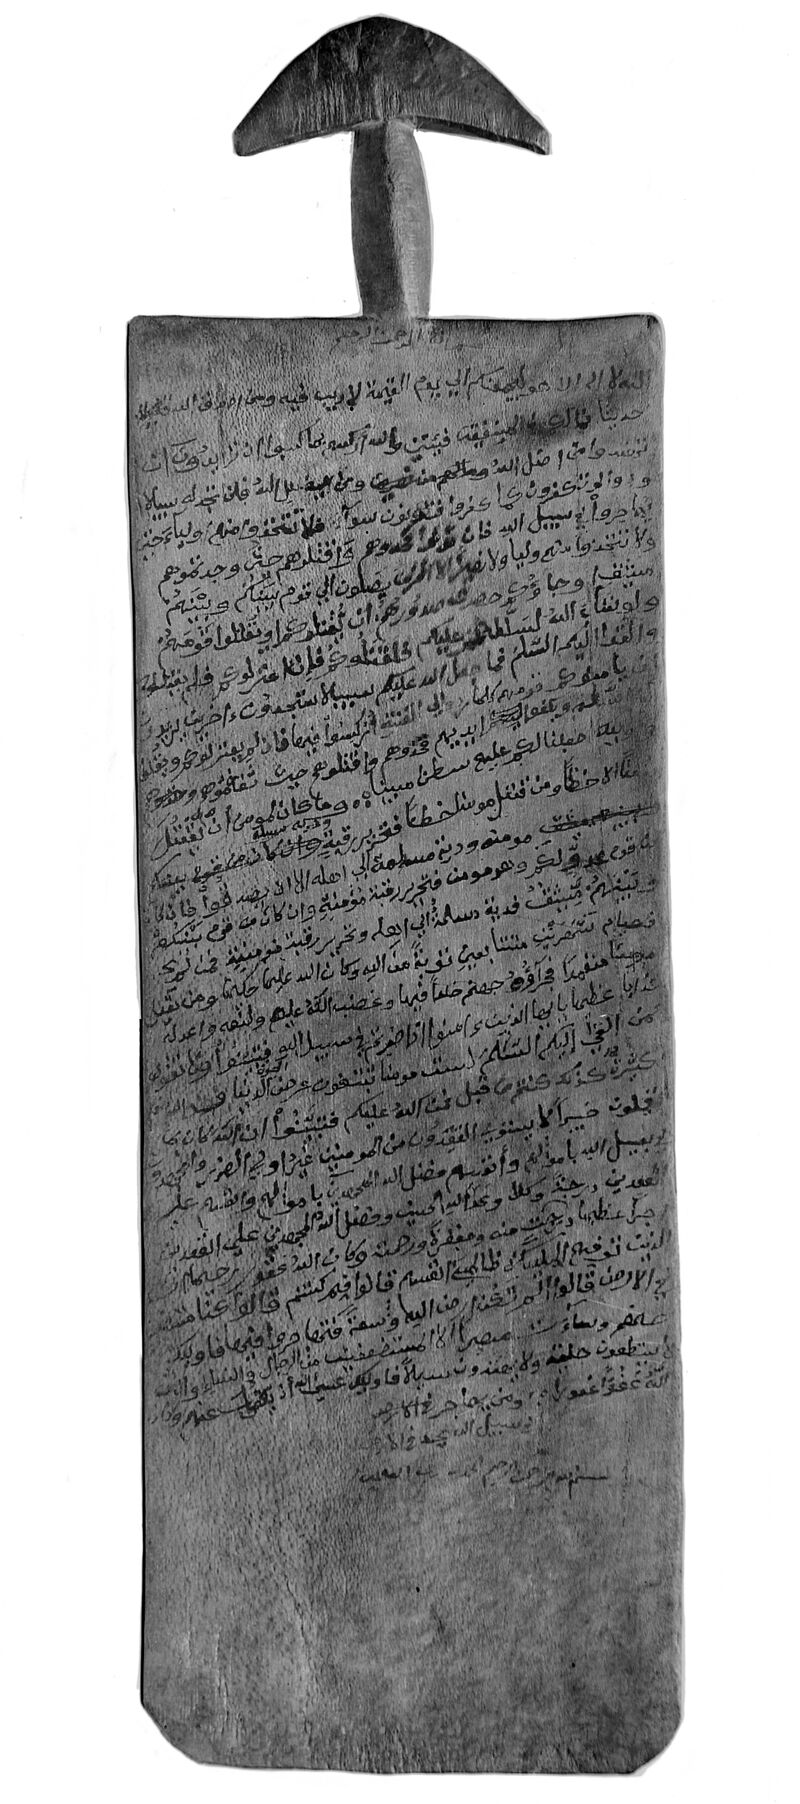 الله الرحمن الرحيم
الله لا اله الا هو ليجمعنكم الي يوم القيمة لا ريب فيه ومن اصدق
حديثا فما لكم المنفقين فيتين والله اركسهم بما كسبوا اتريدون ان
تهدوا من اضل الله ومن يضلل الله فلن تجد له سبيلا
ودوا لو تكفرون كما كفروا فتكونون سواء فلا تتخذوا منهم اولياء حتي
يهاجروا في سبيل الله فان تولوا فخذوهم واقتلوهم حيث وجدتموهم
ولا تتخذوا منهم وليا ولا نصيرا الا الذين يصلون الي قوم بينكم وبينهم
ميثق او جاءوكم حصرت صدورهم ان يقتلوكم او يقتلوا قومهم
ولو شاء الله لسلطهم عليكم فلقتلوكم فان اعتزلوكم فلم يقتلوكم
والقوا اليكم السلم فما جعل الله عليهم سبيلا ستجدون ءاخرين يريدون
ان يامنوكم قومهم كلما ردوا الي الفتنة اركسوا فيها فان لم يعتزلوكم ويلقوا
ويكفوا ايديهم فخذوهم واقتلوهم حيث ثقفتموهم
جعلنا لكم عليهم سلطنا مبينا وما كان لمومن ان يقتل
مومنا الا خطأ ومن قتل مومنا خطأ فتحرير رقبة
مومنة ودية مسلمة الي اهله الا ان يصدقوا فان كان
من قوم عدو لكم وهو مومن فتحرير رقبة مؤمنة وان كان من قوم بينكم
وبينهم ميثق فدية مسلمة الي اهله وتحرير رقبة مومنة فمن لم يجد
فصيام شهرين متتابعين توبة من الله وكان الله عليما حكيما ومن يقتل
مومنا متعمدا فجزآؤه جهنم خلدا فيها وغضب الله عليه ولعنه واعد له
عذابا عظيما يايها الذين ءامنوا اذا ضربتم في سبيل الله فتبينوا ولا تقولوا
لمن القي اليكم السلم لست مومنا تبتغون عرض الحيوة الدنيا فعند الله
كثيرة كذلك كنتم من قبل فمن الله عليكم فتبينوا ان الله كان بما
تعملون خبيرا لا يستوي القعدون من المومنين غير اولي الضرر والمجهدون
في سبيل الله باموالهم وأنفسهم فضل الله المجهدين باموالهم وانفسهم علي
القعدين درجة وكلا وعد الله الحسني وفضل الله المجهدين علي القعدين
اجرا عظيما درجت منه ومغفرة ورحمة وكان الله غفورا رحيما ان
الذين توفيهم المليكة ظالمي انفسهم قالوا فيم كنتم قالوا كنا مستضعفين
في الارض قالوا الم تكن ارض الله وسعة فتهاجروا فيها فاوليك
جهنم وساءت مصيرا الا المستضعفين من الرجال والنساء والولدن
لا يستطيعون حيلة ولا يهتدون سبيلا فاوليك عسي الله ان يعفو عنهم وكان
الله عفوا غفورا ومن يهاجر في
سبيل الله يجد في الارض